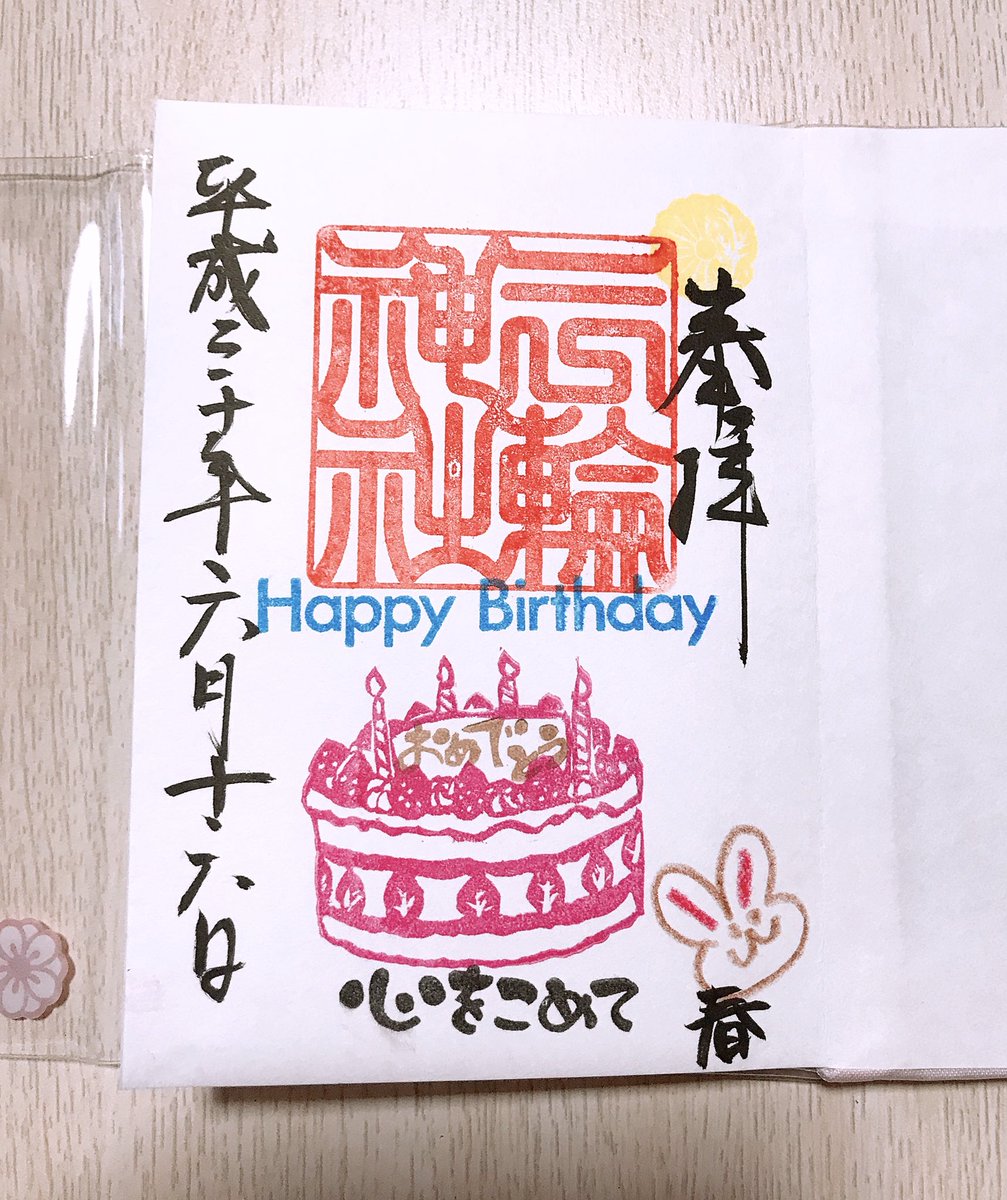 奉拝
三輪
神社
Happy Birthday
おめでとう
心をこめて
春
平成三十年六月十六日